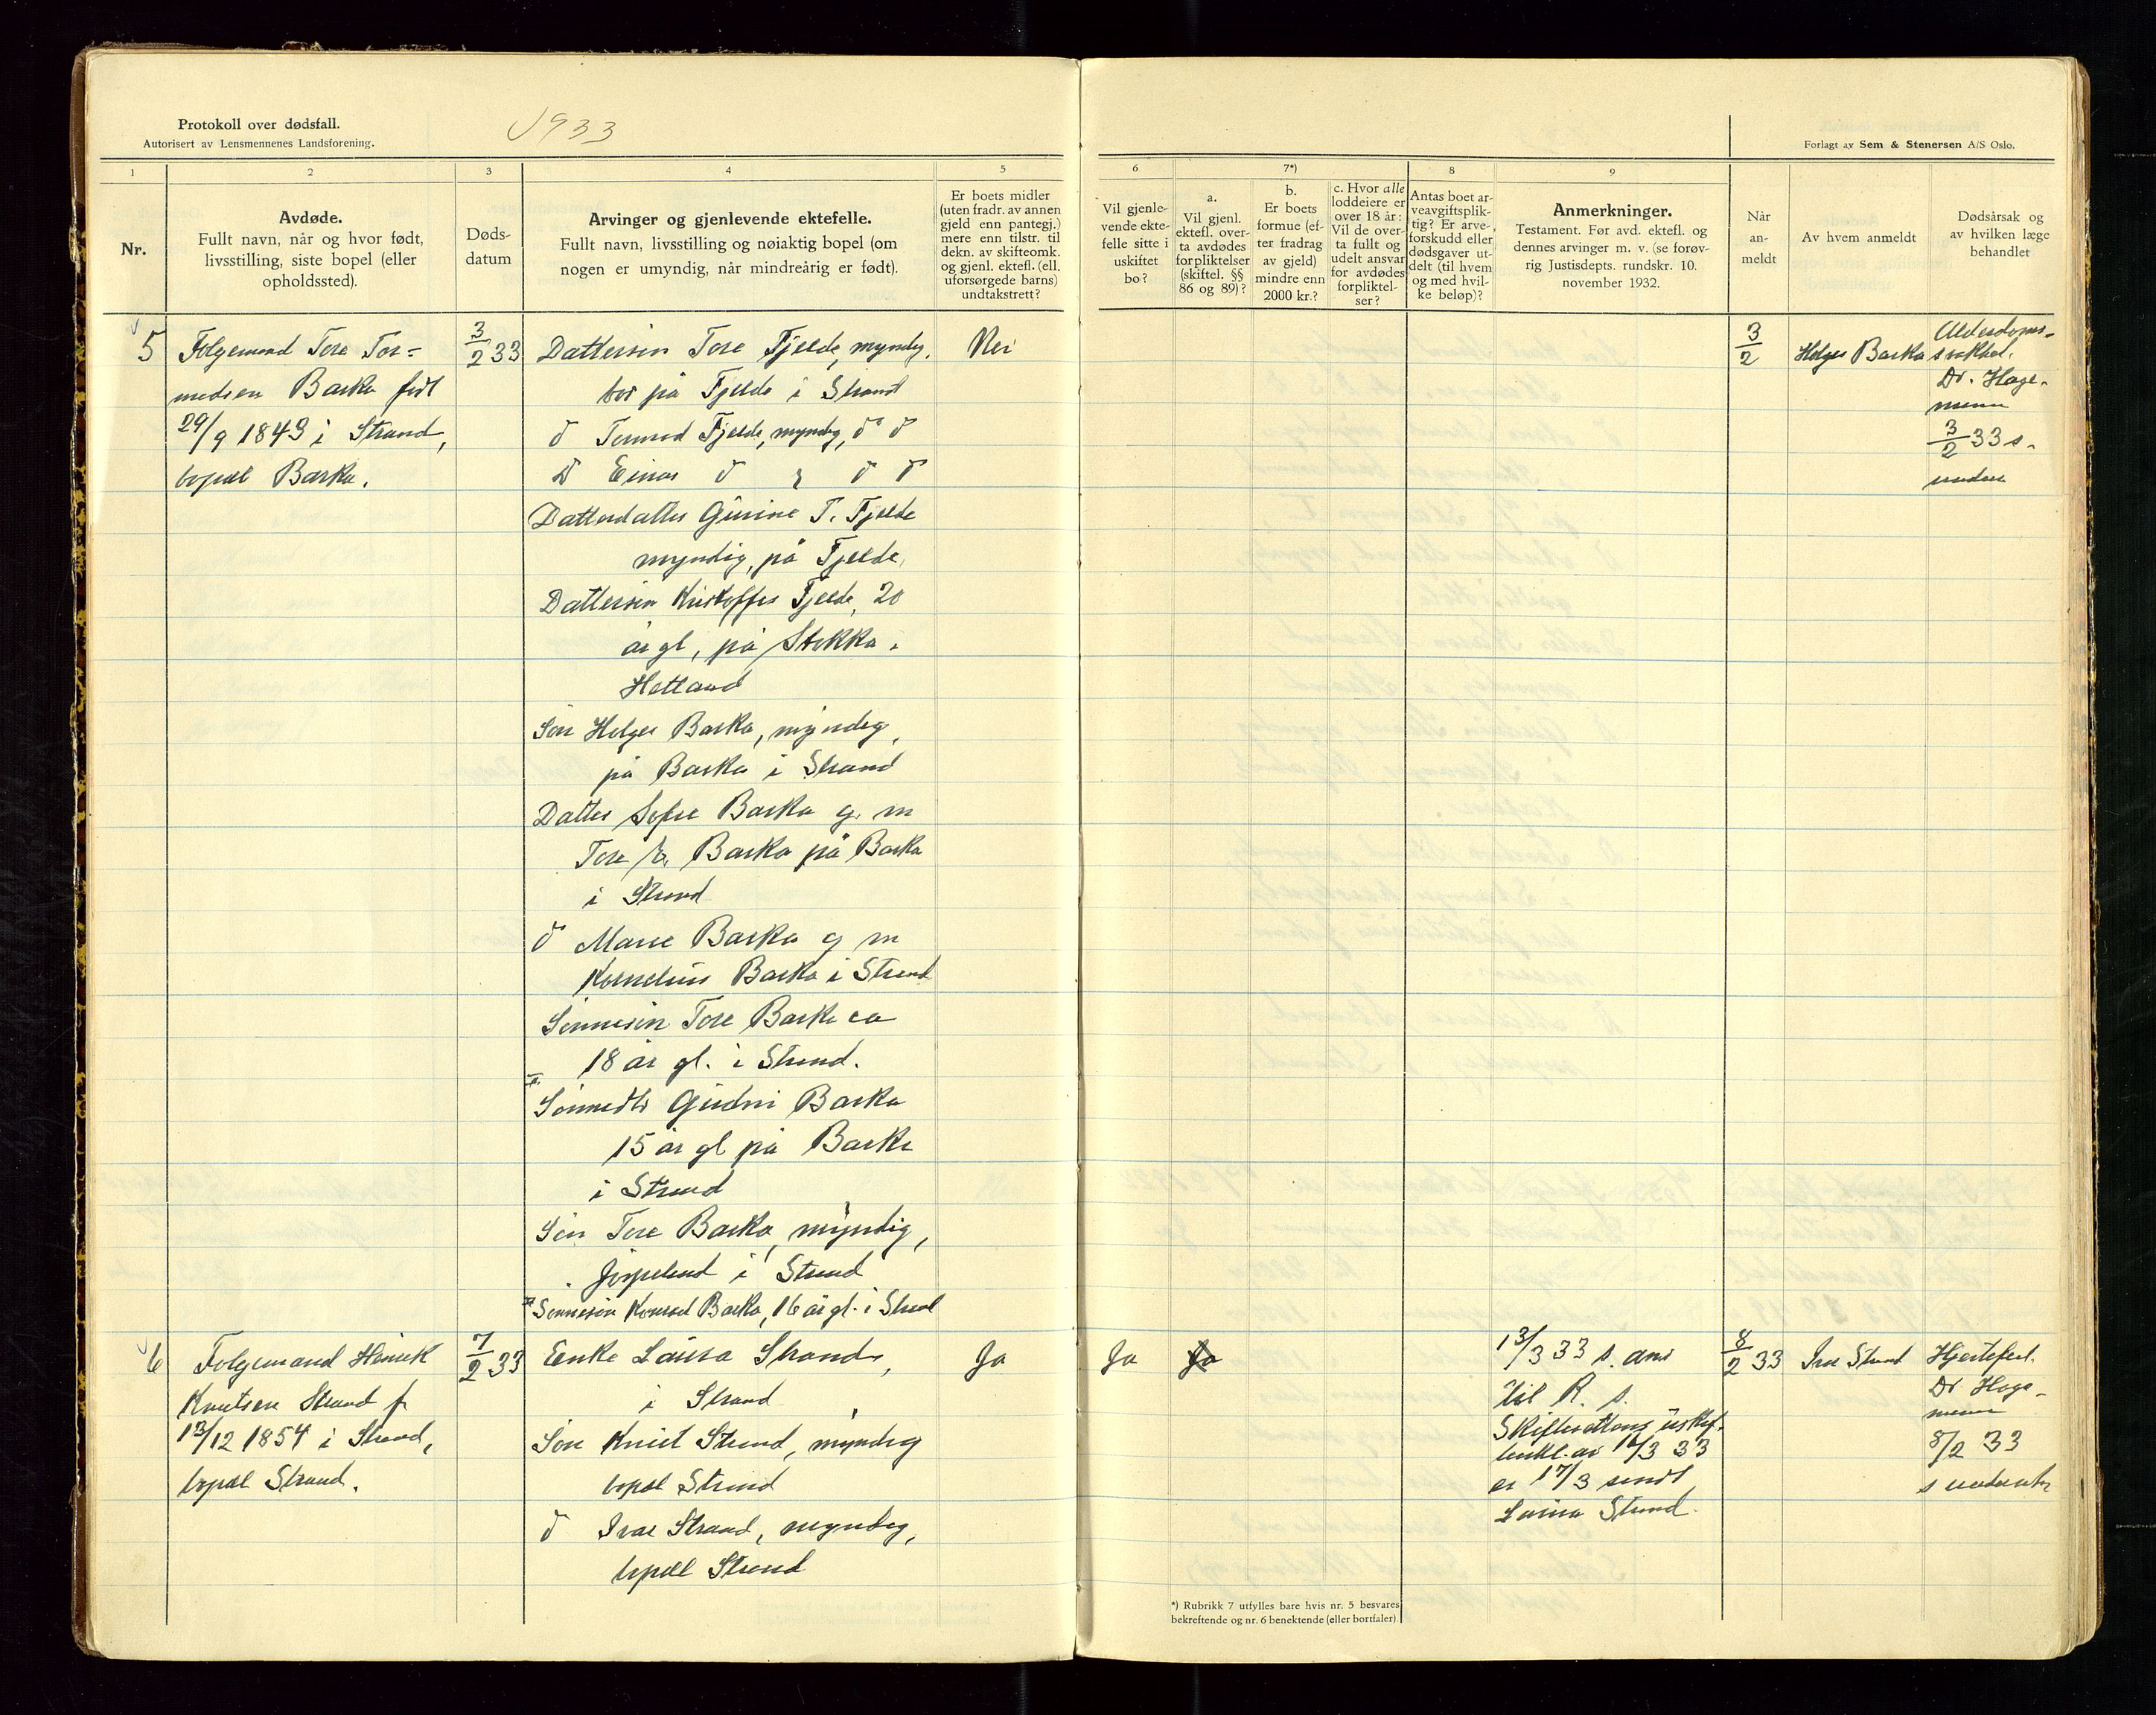 Protokoll over dødsfall.
Autorisert av Lensmennenes Landsforening.
1933
Forlagt av Sem & Stenersen A/S Oslo.
1
2
3
4
5
6
7*)
8
9
Nr.
Avdøde.
Fullt navn, når og hvor født,
livsstilling, siste bopel (eller
opholdssted).
Døds-
datum
Arvinger og gjenlevende ektefelle.
Fullt navn, livsstilling og nøiaktig bopel (om
nogen er umyndig, når mindreårig er født).
Er boets midler
(uten fradr. av annen
gjeld enn pantegj.)
mere enn tilstr. til
dekn. av skifteomk.
og gjenl. ektefl. (ell.
uforsørgede barns)
undtakstrett?
Vil gjenle-
vende ekte-
felle sitte i
uskiftet
bo?
a.
Vil gjenl.
ektefl. over-
ta avdødes
forpliktelser
(skiftel. §§
86 og 89)?
b.
Er boets
formue (ef-
ter fradrag
av gjeld)
mindre enn
2000 kr.?
c. Hvor alle
loddeiere er
over 18 år:
Vil de over-
ta fullt og
udelt ansvar
for avdødes
forpliktel-
ser?
Antas boet ar-
veavgiftsplik-
tig? Er arve-
forskudd eller
dødsgaver ut-
delt (til hvem
og med hvil-
ke beløp)?
Anmerkninger.
Testament. Før avd. ektefl. og
dennes arvinger m. v. (se forøv-
rig Justisdepts. rundskr. 10.
november 1932.
Når
an-
meldt
Av hvem anmeldt
Dødsårsak og
av hvilken læge
behandlet
5
Folgemand Tore Tor=
medsen Barka født
29/9 1849 i Strand,
bopæl Barka.
3/2 33
Dattersøn Tore Fjelde, myndig,
bor på Fjelde i Strand
d Tormod Fjelde, myndig, d d
D Einar d , d d
Datterdatter Gurine T. Fjelde
myndig, på Fjelde,
Dattersøn Kristoffer Fjelde, 20
år gl, på Stokka,
Hetland
Søn Helger Barka, myndig,
på Barka i Strand
Datter Sofie Barka g. m
Tore E. Barka på Barka
i Strand
d Marie Barka g m
Kornelius Barka i Strand
Sønnesøn Tore Barka ca
18 år gl. i Strand.
Sønnedtr Gudni Barka
15 år gl på Barka
i Strand
Søn Tore Barka, myndig,
Jørpeland i Strand
Sønnesøn Konrad Barka, 16 år gl. i Strand
Nei
3/2
Helger Barka
Alderdoms-
svakhet.
Dr. Hage-
mann
3/2 33 s.
under
6
Folgemand Henrik
Knutsen Strand f
13/12 1854 i Strand,
bopæl Strand.
7/2 33
Enke Laura Strand,
i Strand
Søn Knut Strand, myndig
bopæl Strand
d Ivar Strand, myndig,
bopæl Strand
Ja
Ja
Ja
13/3 33 s. ans
til R. s.
Skifterettens uskif.
16/3 33
er 17/3 sendt
Laura Strand.
8/2 33
Ivar Strand
Hjertefeil.
Dr Hage-
mann
8/2 33
*) Rubrikk 7 utfylles bare hvis nr. 5 besvares
bekreftende og nr. 6 benektende (eller bortfaler).